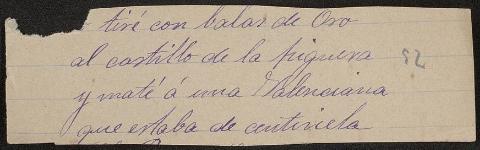 tiré con balas de Oro
al castillo de la figuera
y maté á una Valenciana
que estaba de centinela
52